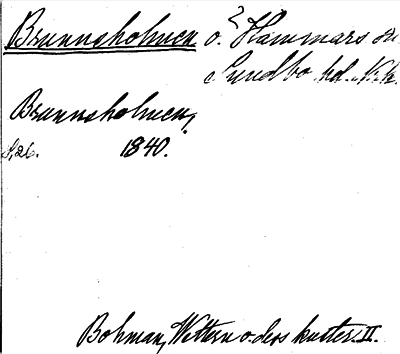 Brunnsholmen o. Hammars sn
Sundbo hd. Nke.
Brunnsholmen,
S. 26. 1840.
Bohman, Wettern o. dess kuster. II.